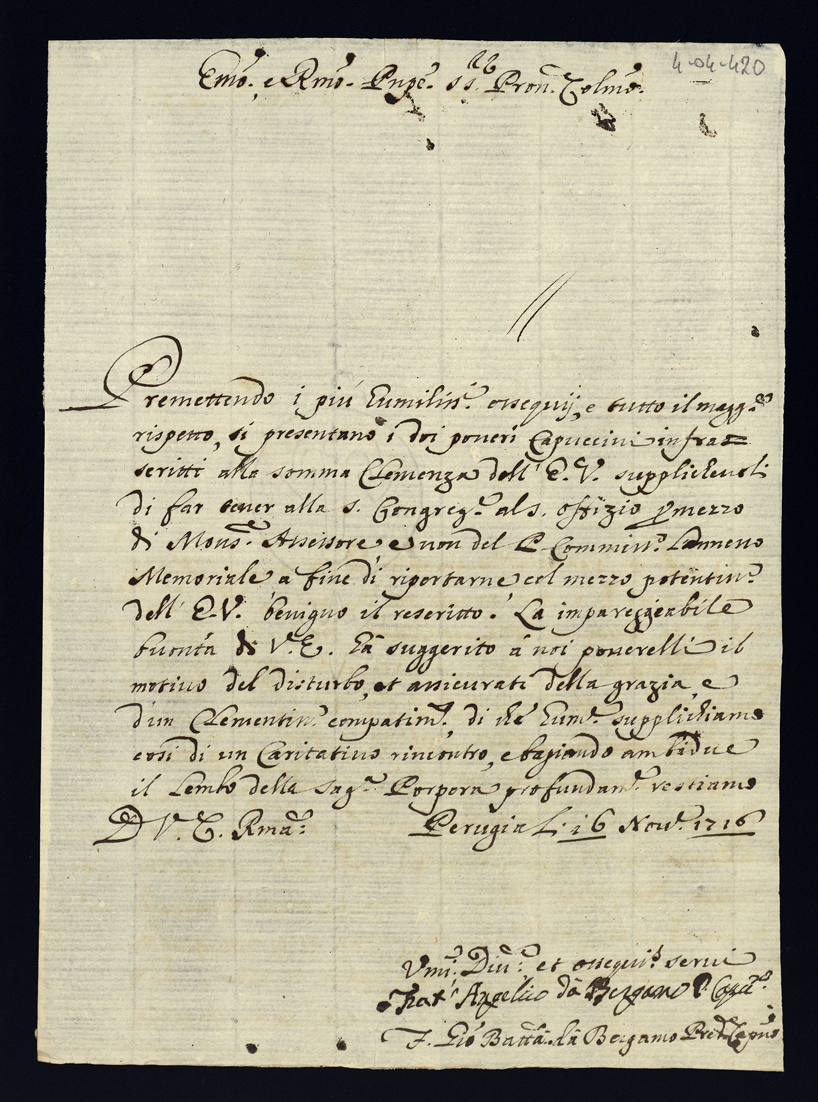 4-04-420
Emo. e Rmo. Pnpe. ss. Pron. Colmo.
Premettendo i più humilis. ossequij, e tutto il magg.e
rispetto, si presentano i doi poveri Capuccini infra=
scritti alla somma Clemenza dell' E.V. supplichevoli
di far tener alla s. Congreg. al s. offizio p mezzo
di Mons. Assessore e non del P. Commiss. L'annesso
Memoriale a fine di riportarne col mezzo potentiss.
dell' E.V. benigno il rescritto. La impareggieabile
buontà di V.E. hà suggerito à noi poverelli il
motivo del disturbo, et assicurati della grazia, e
d'un Clementiss. compatim. di che hum. supplichiamo
così di un Caritativo rincontro, e bagiando ambidue
il Lembo della sag. Porpora profundam. restiamo
D V.E. Rma.
Perugia Li 16 Nov. 1716
Vmi. Div. et ossequi. servi
Frat' Angelico dà Bergamo P. Capu.
F. Gio Batta. dà Bergamo Pred. Capno